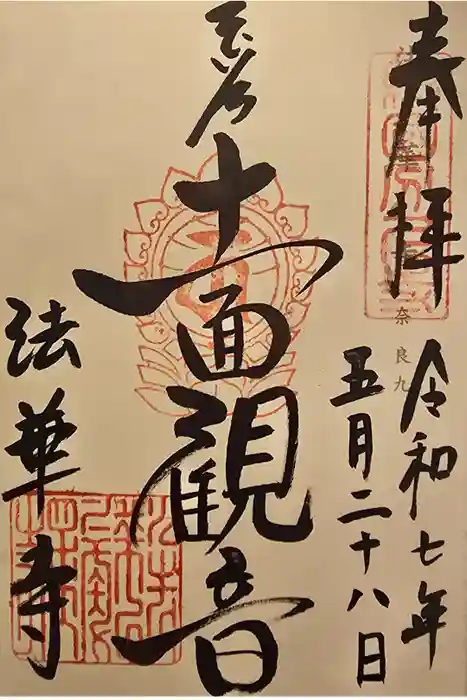 奉拝
奈良九
令和七年
五月二十八日
十一面観音
法華寺